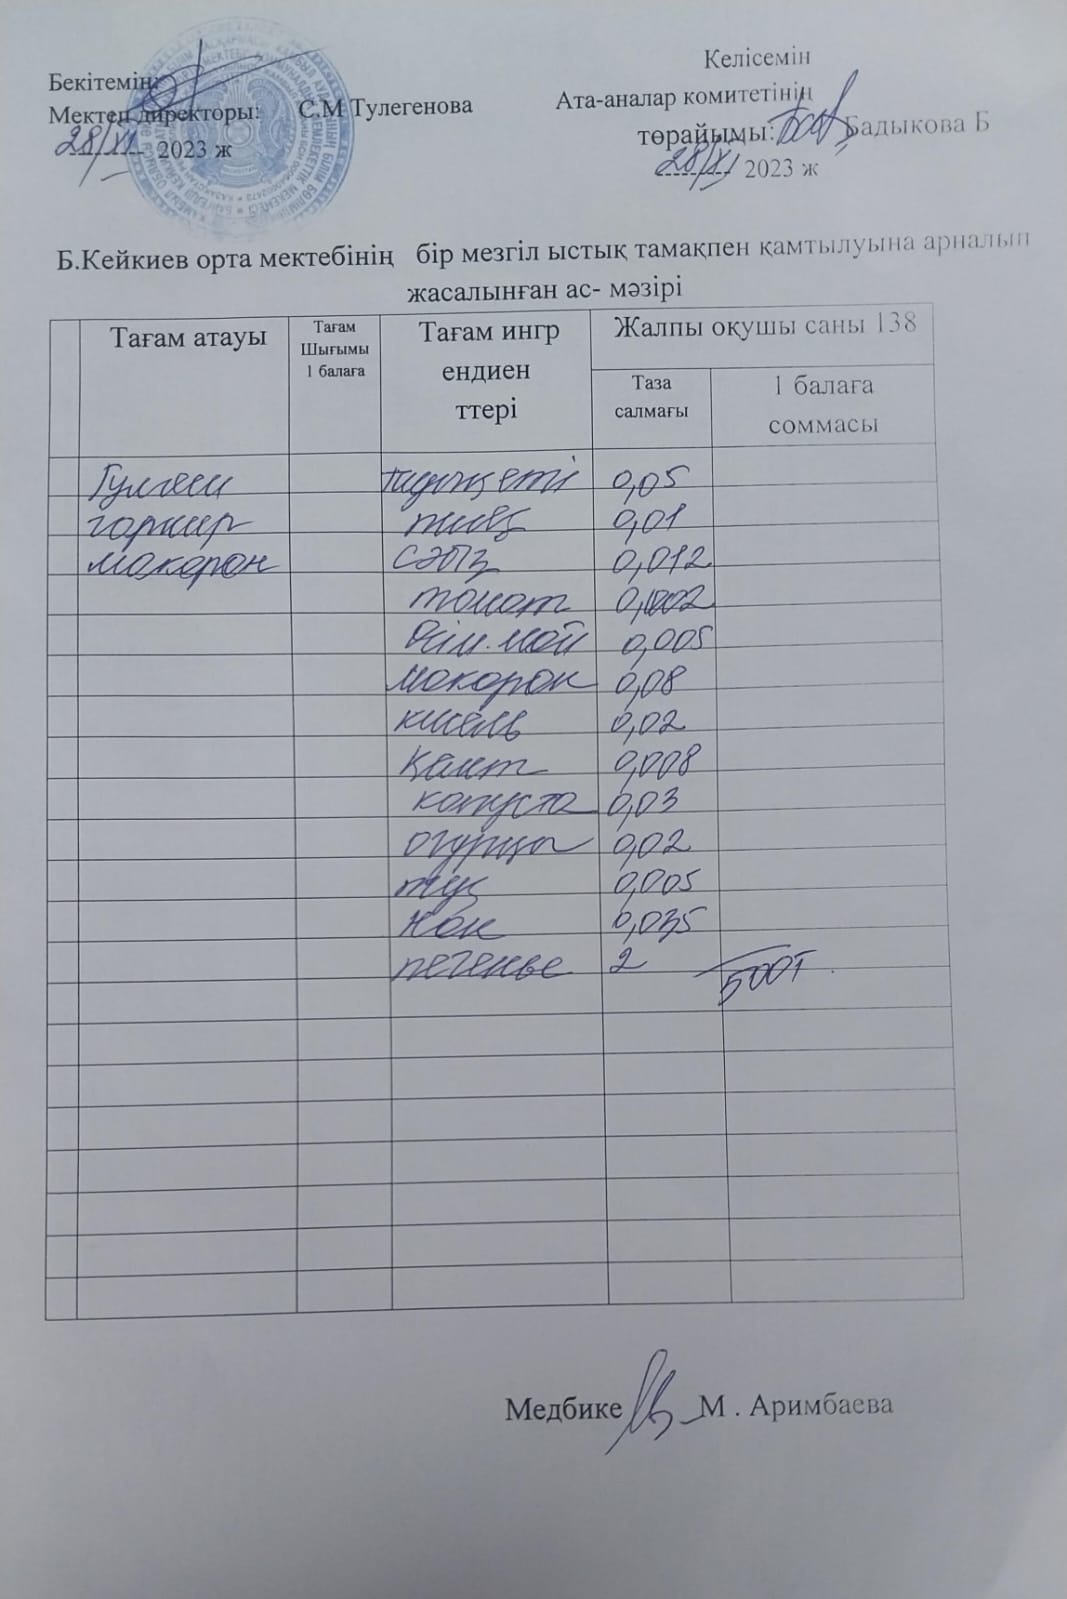 Бекітемін:
Мектеп директоры: С.М Тулегенова
28/XI 2023 ж
Келісемін
Ата-аналар комитетінің
төрайымы: Бадыкова Б
28/XI 2023 ж
Б.Кейкиев орта мектебінің бір мезгіл ыстық тамақпен қамтылуына арналып
жасалынған ас- мәзірі
Тағам атауы
Тағам
Шығымы
1 балаға
Тағам ингр
ендиен
ттері
Жалпы оқушы саны 138
Таза
салмағы
1 балаға
соммасы
Гуляш 0,05
гарнир пияз 0,01
макарон сәбіз 0,012
томат 0,002
Өсім. май 0,005
макарон 0,08
кисель 0,02
Қант 0,008
капуста 0,03
огурцы 0,02
тұз 0,005
Нан 0,035
печенье 2 500т
Медбике М . Аримбаева